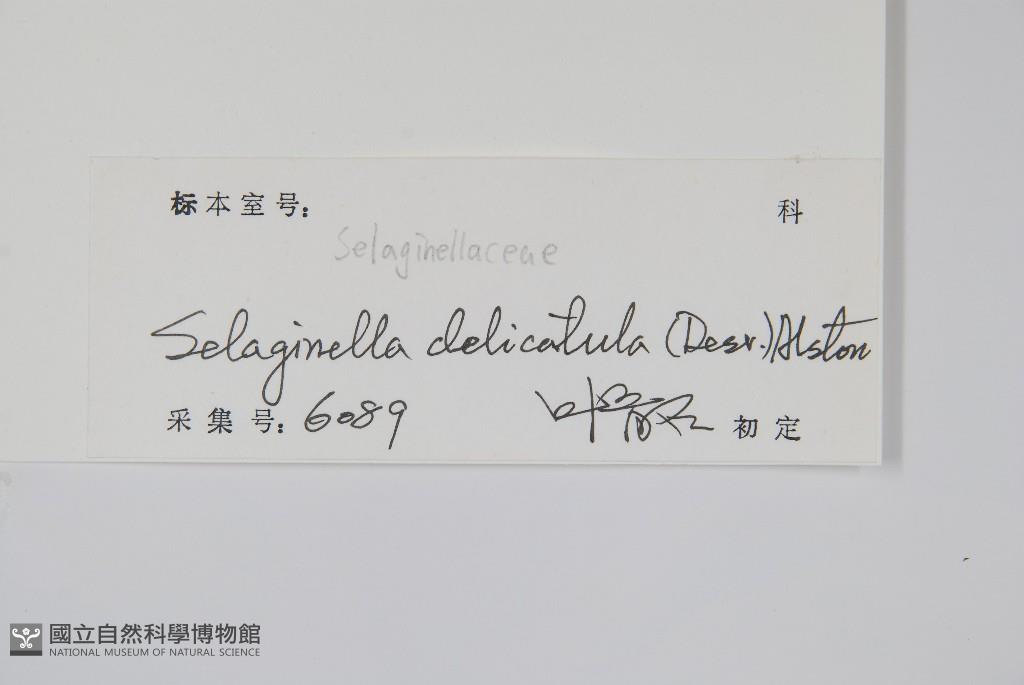 标本室号： 科
Selaginellaceae
Selaginella delicatula (Desv.) Alston
采集号：6089 叶 初定
國立自然科學博物館
NATIONAL MUSEUM OF NATURAL SCIENCE